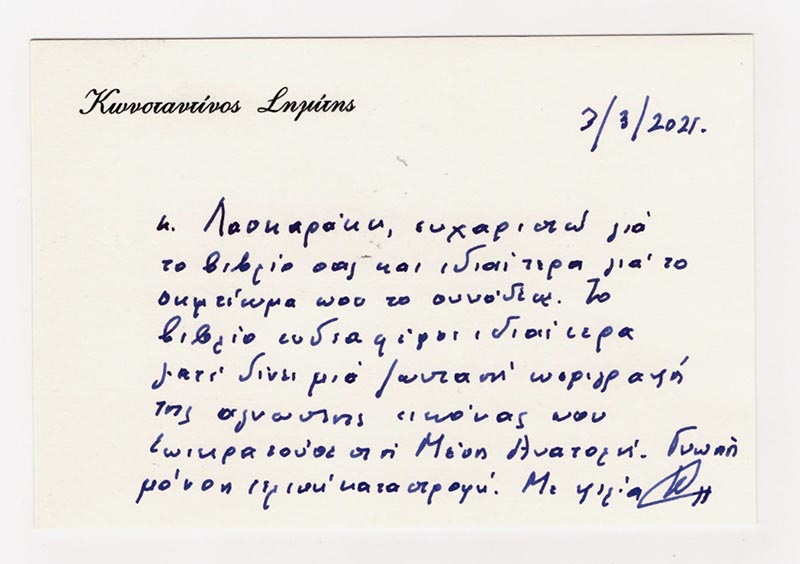 Κωνσταντίνος Σημίτης
3/3/2021.
κ. Λασκαράκη, ευχαριστώ γιά
το βιβλίο σας και ιδιαίτερα γιά το
σημείωμα που το συνόδευε. Το
βιβλίο ενδιαφέρει ιδιαίτερα
γιατί δίνει μιά ζωντανή περιγραφή
της άγνωστης εικόνας που
επικρατούσε στή Μέση Ανατολή.
μόνο η τελική καταστροφή. Με φιλία